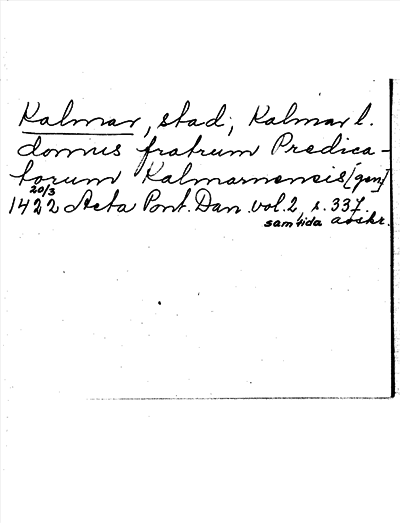 Kalmar, stad; Kalmar l.
domus fratrum Predica-
torum Kalmarnensis [gen]
20/3
1422 Acta Pont. Dan. vol. 2, s. 337.
samtida avskr.